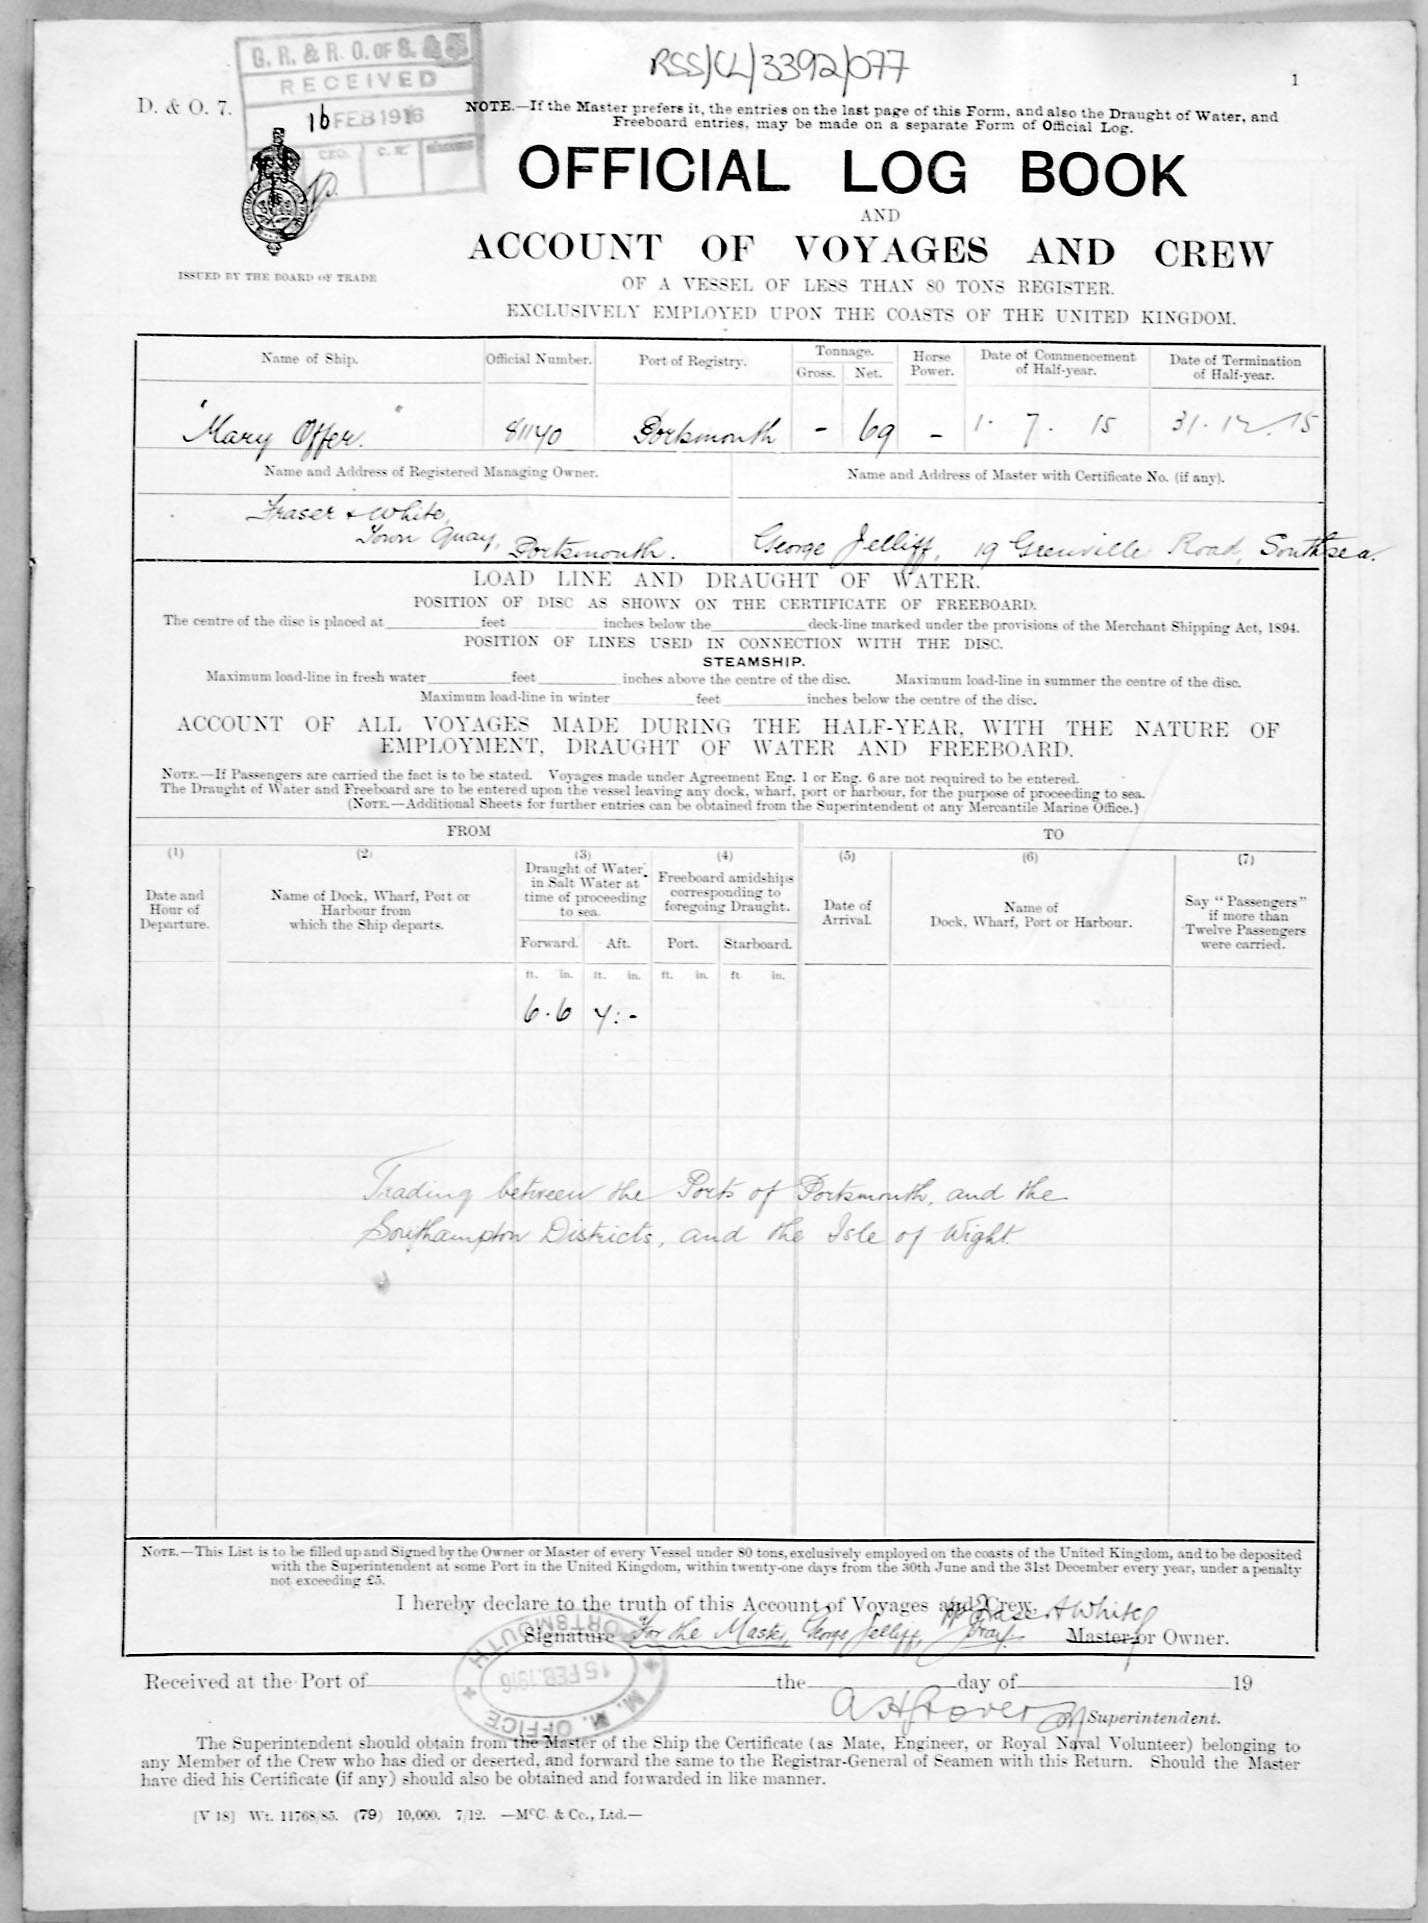 RSS/CL/3392/077
1
D. & O. 7.
G. R. & R. O. OF S. & S.
RECEIVED
16 FEB 1916
NOTE.—If the Master prefers it, the entries on the last page of this Form, and also the Draught of Water, and
Freeboard entries, may be made on a separate Form of Official Log.
OFFICIAL LOG BOOK
AND
ACCOUNT OF VOYAGES AND CREW
ISSUED BY THE BOARD OF TRADE
OF A VESSEL OF LESS THAN 80 TONS REGISTER.
EXCLUSIVELY EMPLOYED UPON THE COASTS OF THE UNITED KINGDOM.
Name of Ship. Official Number. Port of Registry. Tonnage. Gross. Net. Horse Power. Date of Commencement of Half-year. Date of Termination of Half-year.
"Mary Offer." 81140 Portsmouth - 69 - 1. 7. 15 31. 12. 15
Name and Address of Registered Managing Owner. Name and Address of Master with Certificate No. (if any).
Fraser & White,
Town Quay, Portsmouth. George Jelliff, 19 Grenville Road, Southsea.
LOAD LINE AND DRAUGHT OF WATER.
POSITION OF DISC AS SHOWN ON THE CERTIFICATE OF FREEBOARD.
The centre of the disc is placed at feet inches below the deck-line marked under the provisions of the Merchant Shipping Act, 1894.
POSITION OF LINES USED IN CONNECTION WITH THE DISC.
STEAMSHIP.
Maximum load-line in fresh water feet inches above the centre of the disc. Maximum load-line in summer the centre of the disc.
Maximum load-line in winter feet inches below the centre of the disc.
ACCOUNT OF ALL VOYAGES MADE DURING THE HALF-YEAR, WITH THE NATURE OF
EMPLOYMENT, DRAUGHT OF WATER AND FREEBOARD.
NOTE.—If Passengers are carried the fact is to be stated. Voyages made under Agreement Eng. 1 or Eng. 6 are not required to be entered.
The Draught of Water and Freeboard are to be entered upon the vessel leaving any dock, wharf, port or harbour, for the purpose of proceeding to sea.
(NOTE.—Additional Sheets for further entries can be obtained from the Superintendent of any Mercantile Marine Office.)
FROM TO
(1) (2) (3) (4) (5) (6) (7)
Date and Hour of Departure.
Name of Dock, Wharf, Port or Harbour from which the Ship departs.
Draught of Water in Salt Water at time of proceeding to sea.
Freeboard amidships corresponding to foregoing Draught.
Date of Arrival.
Name of Dock, Wharf, Port or Harbour.
Say "Passengers" if more than Twelve Passengers were carried.
Forward. Aft. Port. Starboard.
ft. in. ft. in. ft. in. ft in.
6.6 7:-
Trading between the Ports of Portsmouth, and the
Southampton Districts, and the Isle of Wight.
NOTE.—This List is to be filled up and Signed by the Owner or Master of every Vessel under 80 tons, exclusively employed on the coasts of the United Kingdom, and to be deposited
with the Superintendent at some Port in the United Kingdom, within twenty-one days from the 30th June and the 31st December every year, under a penalty
not exceeding £5.
I hereby declare to the truth of this Account of Voyages and Crew.
Fraser & White
Signature For the Master, George Jelliff, Master or Owner.
M. M. OFFICE PORTSMOUTH
15 FEB. 1916
Received at the Port of the day of 19
Superintendent.
The Superintendent should obtain from the Master of the Ship the Certificate (as Mate, Engineer, or Royal Naval Volunteer) belonging to
any Member of the Crew who has died or deserted, and forward the same to the Registrar-General of Seamen with this Return. Should the Master
have died his Certificate (if any) should also be obtained and forwarded in like manner.
[V 18] Wt. 11768/85. (79) 10,000. 7/12. —McC. & Co., Ltd.—